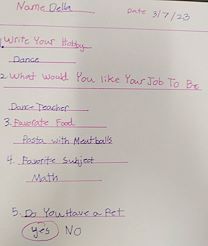 Name Della Date 3/7/23
1. Write Your Hobby
Dance
2. What Would You like Your Job To Be
Dance Teacher
3. Favorate Food
Pasta with Meatballs
4. Favorite Subject
Math
5. Do You Have a Pet
yes NO